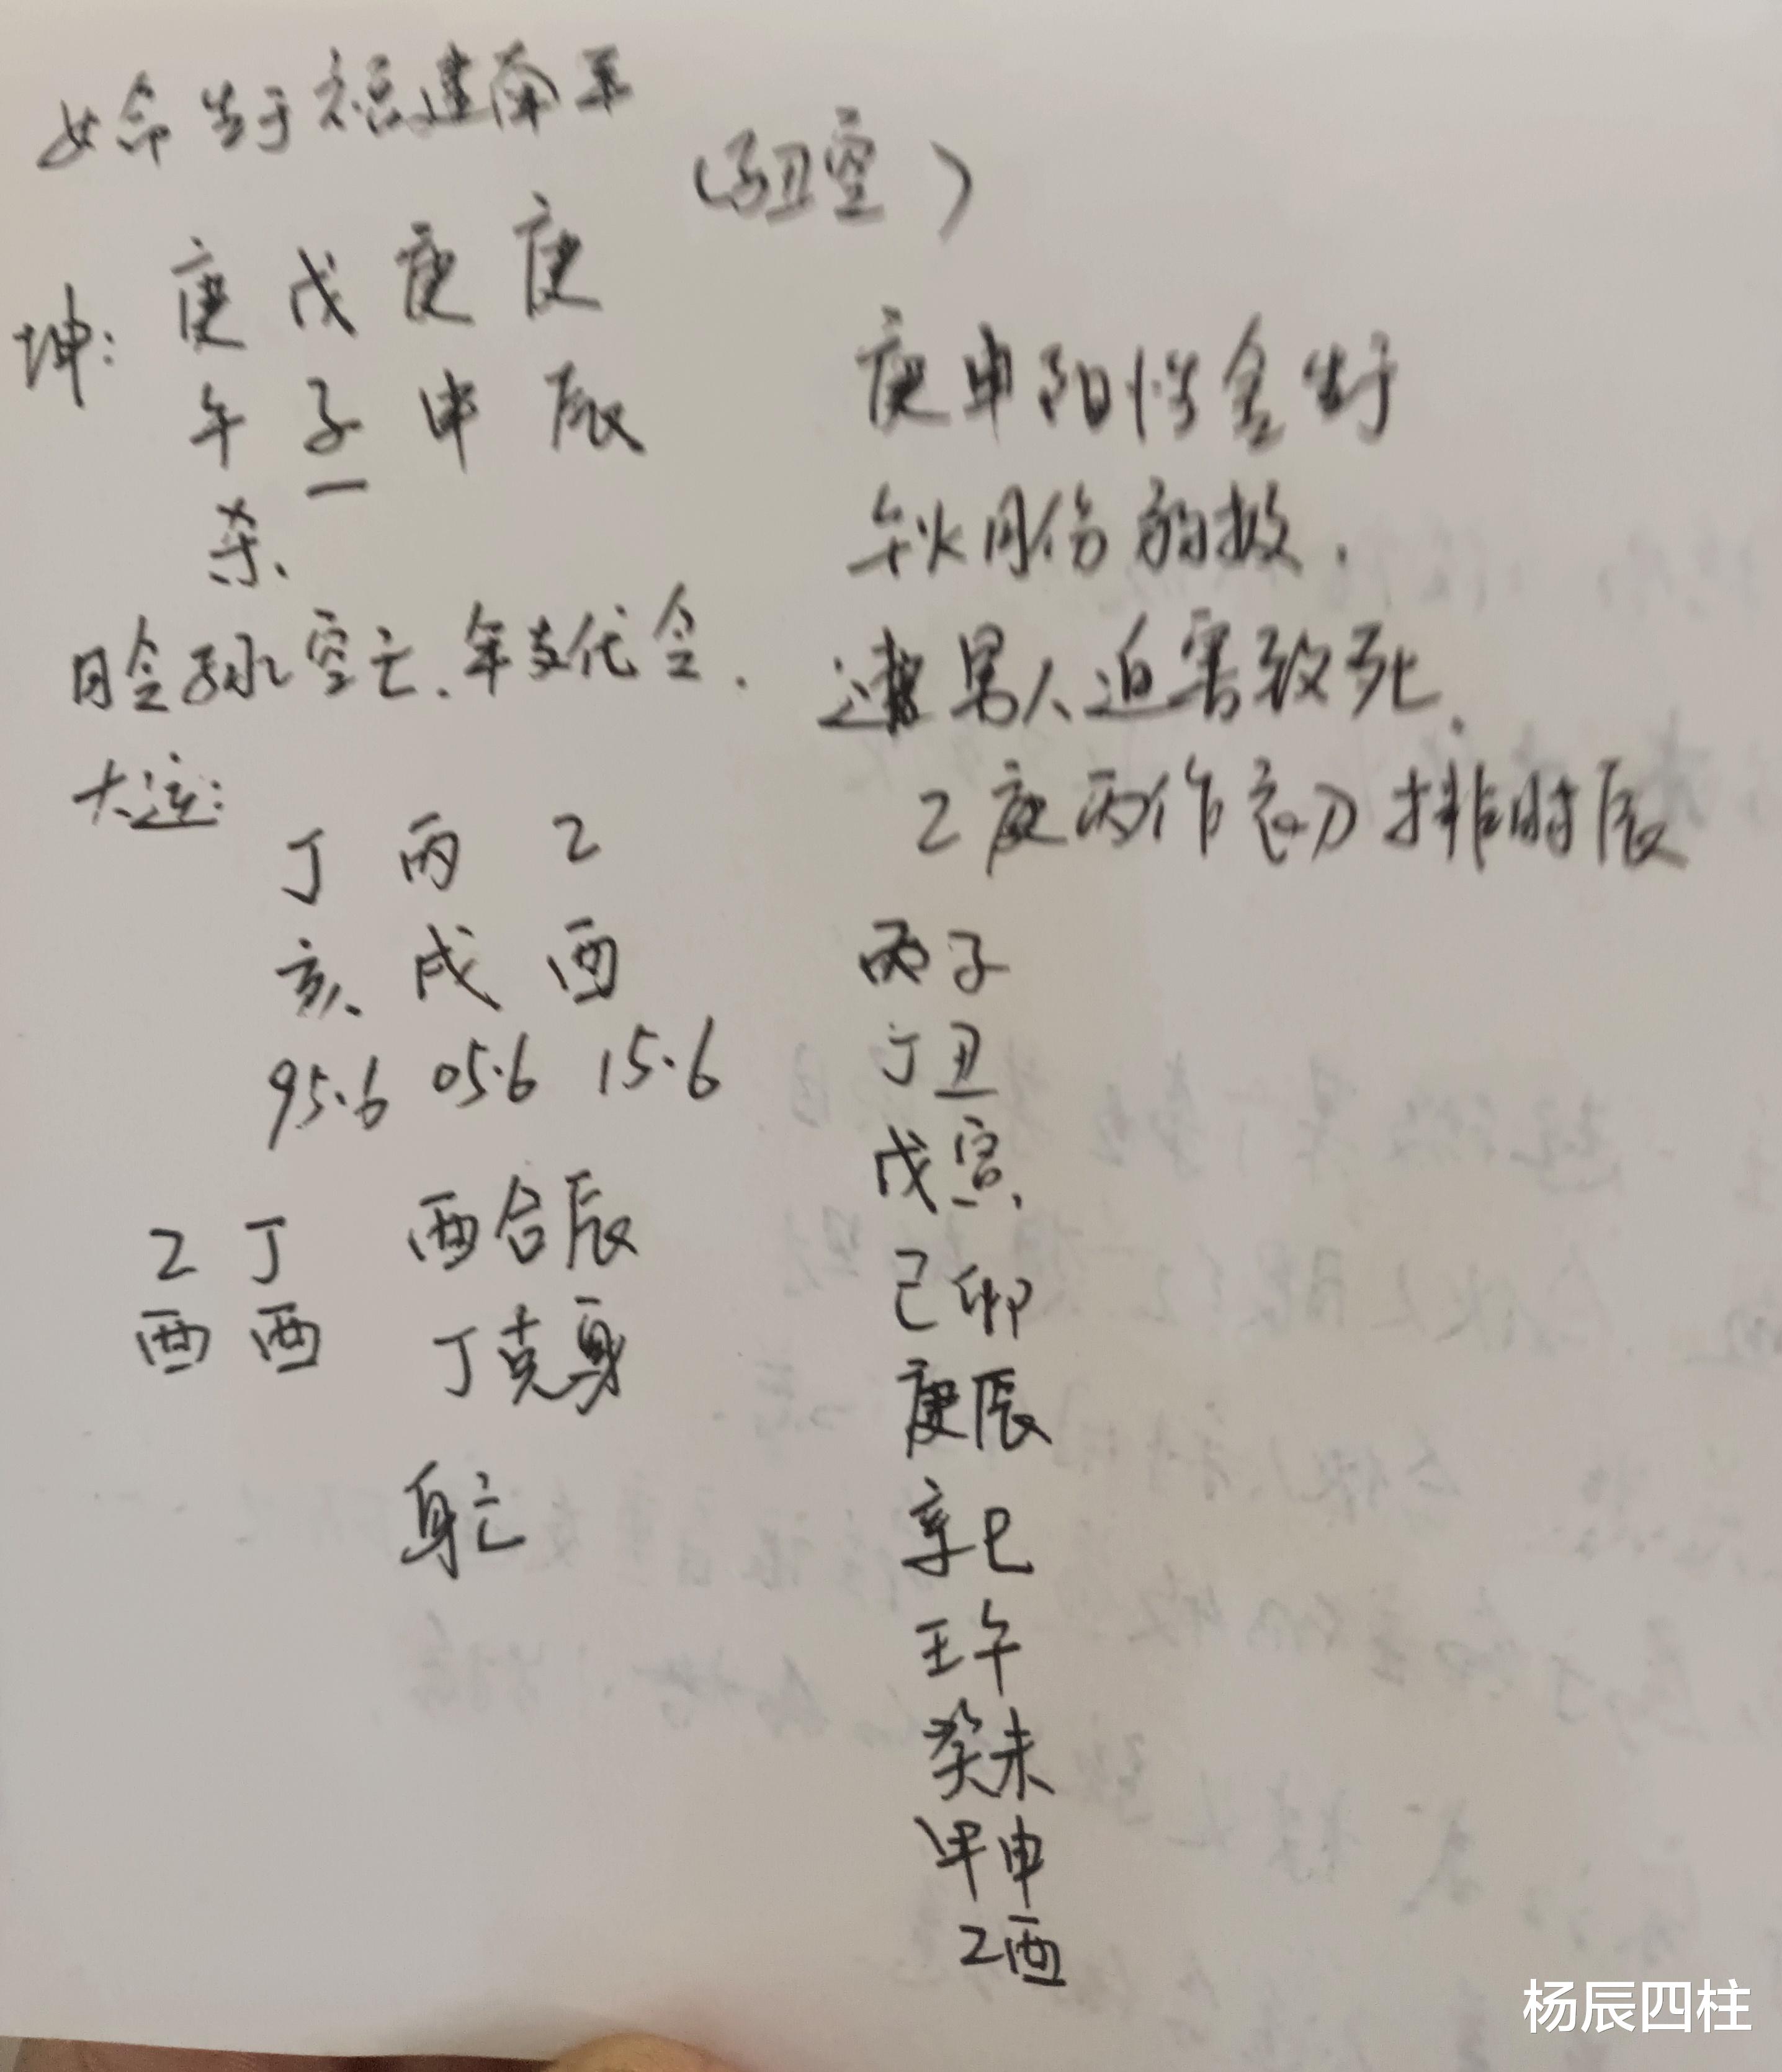 女命生于福建南平
(子丑空)
坤: 庚 戊 庚 庚
午 子 申 辰
杀、
月令子水空亡.年支代令.
大运:
丁 丙 乙
亥、 戌 酉
95.6 05.6 15.6
乙 丁 酉合辰
酉 酉 丁克身
身亡
庚申阳性金生于
午火月伤的极.
遭男人迫害致死.
乙庚丙作初排时辰
丙子
丁丑
戊寅、
己卯
庚辰
辛巳
壬午
癸未
甲申
乙酉
杨辰四柱